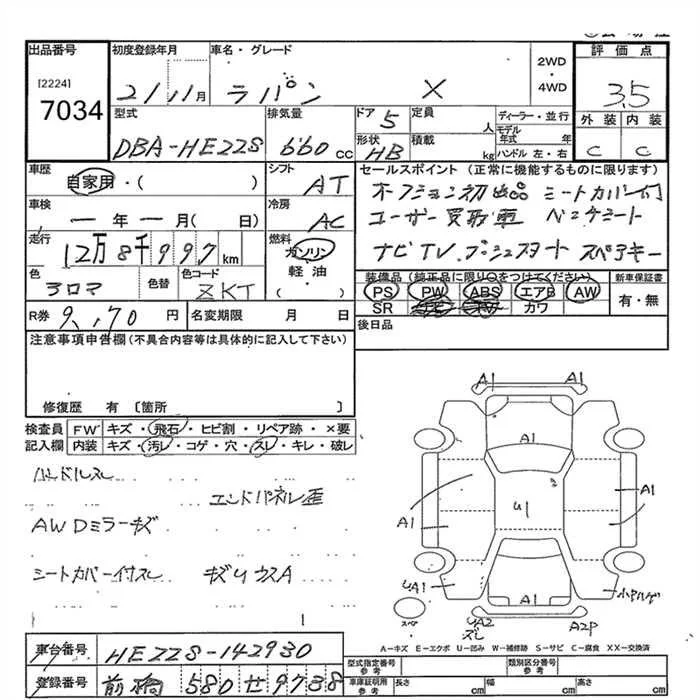 出品番号 初度登録年月 車名・グレード 2WD・4WD 評価点
[2224]
7034
21 11月 ラパン X 3.5
型式 排気量 ドア 定員 人 ディーラー・並行 外装 内装
DBA-HE22S 660cc 5 モデル年式 年 C C
形状 積載 kg ハンドル 左・右
HB
車歴 シフト セールスポイント (正常に機能するものに限ります)
自家用・( ) AT オプション初出品 シートカバー付
車検 冷房 ユーザー買取車 ベンチシート
ー年ー月( 日) AC
走行 燃料 ナビTV.プッシュスタート スペアキー
12万8千997km ガソリン
軽油
( )
色 色替 色コード 装備品(純正品に限り○をつけてください) 新車保証書
クロマ ZKT PS PW ABS エアB AW 有・無
SR カワ
R券 9,170円 名変期限 月 日 後日品
注意事項申告欄(不具合内容等は具体的に記入して下さい)
修復歴 有〔箇所 〕
検査員 FW キズ・飛石・ヒビ割・リペア跡・×要
記入欄 内装 キズ・汚レ・コゲ・穴・スレ・キレ・破レ
ハンドルスレ
エンドパネル歪
AWDミラーキズ
シートカバー付スレ キズUカスA
A1 A1
A1
A1 U1 A1
UA1
A1 UA2 A2P
スレ
スペア
A-キズ E-エクボ U-凹み W-補修跡 S-サビ C-腐食 XX-交換済
車台番号 HE22S-142930
登録番号 前橋 580 せ 9738
型式指定番号 参考 類別区分番号 参考
車庫証明用 参考 長さ cm 幅 cm 高さ cm